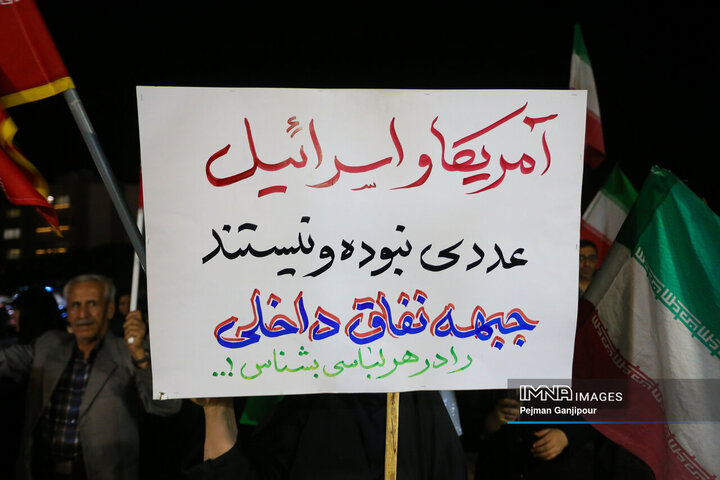 آمریکا و اسرائیل
عددی نبوده و نیستند
جبهه نفاق داخلی
را در هر لباسی بشناس !..
IMNA IMAGES
Pejman Ganjipour